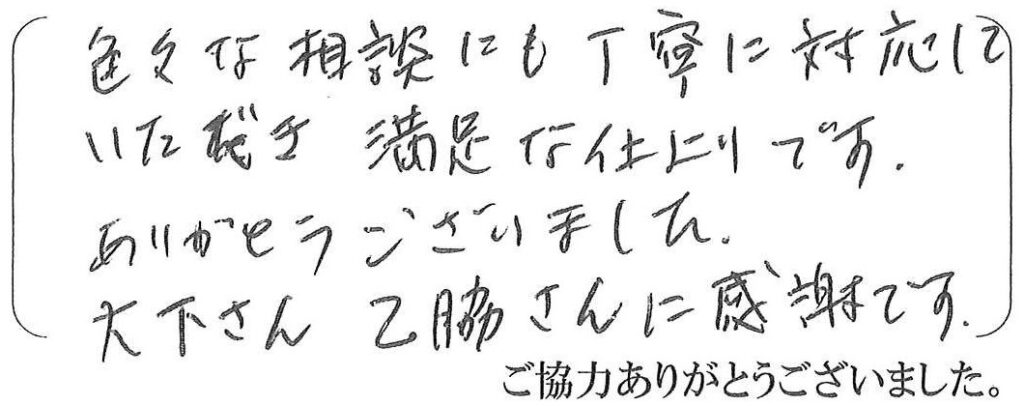 色々な相談にも丁寧に対応して
いただき 満足な仕上りです.
ありがとうございました.
大下さん 乙脇さんに感謝です.
ご協力ありがとうございました。